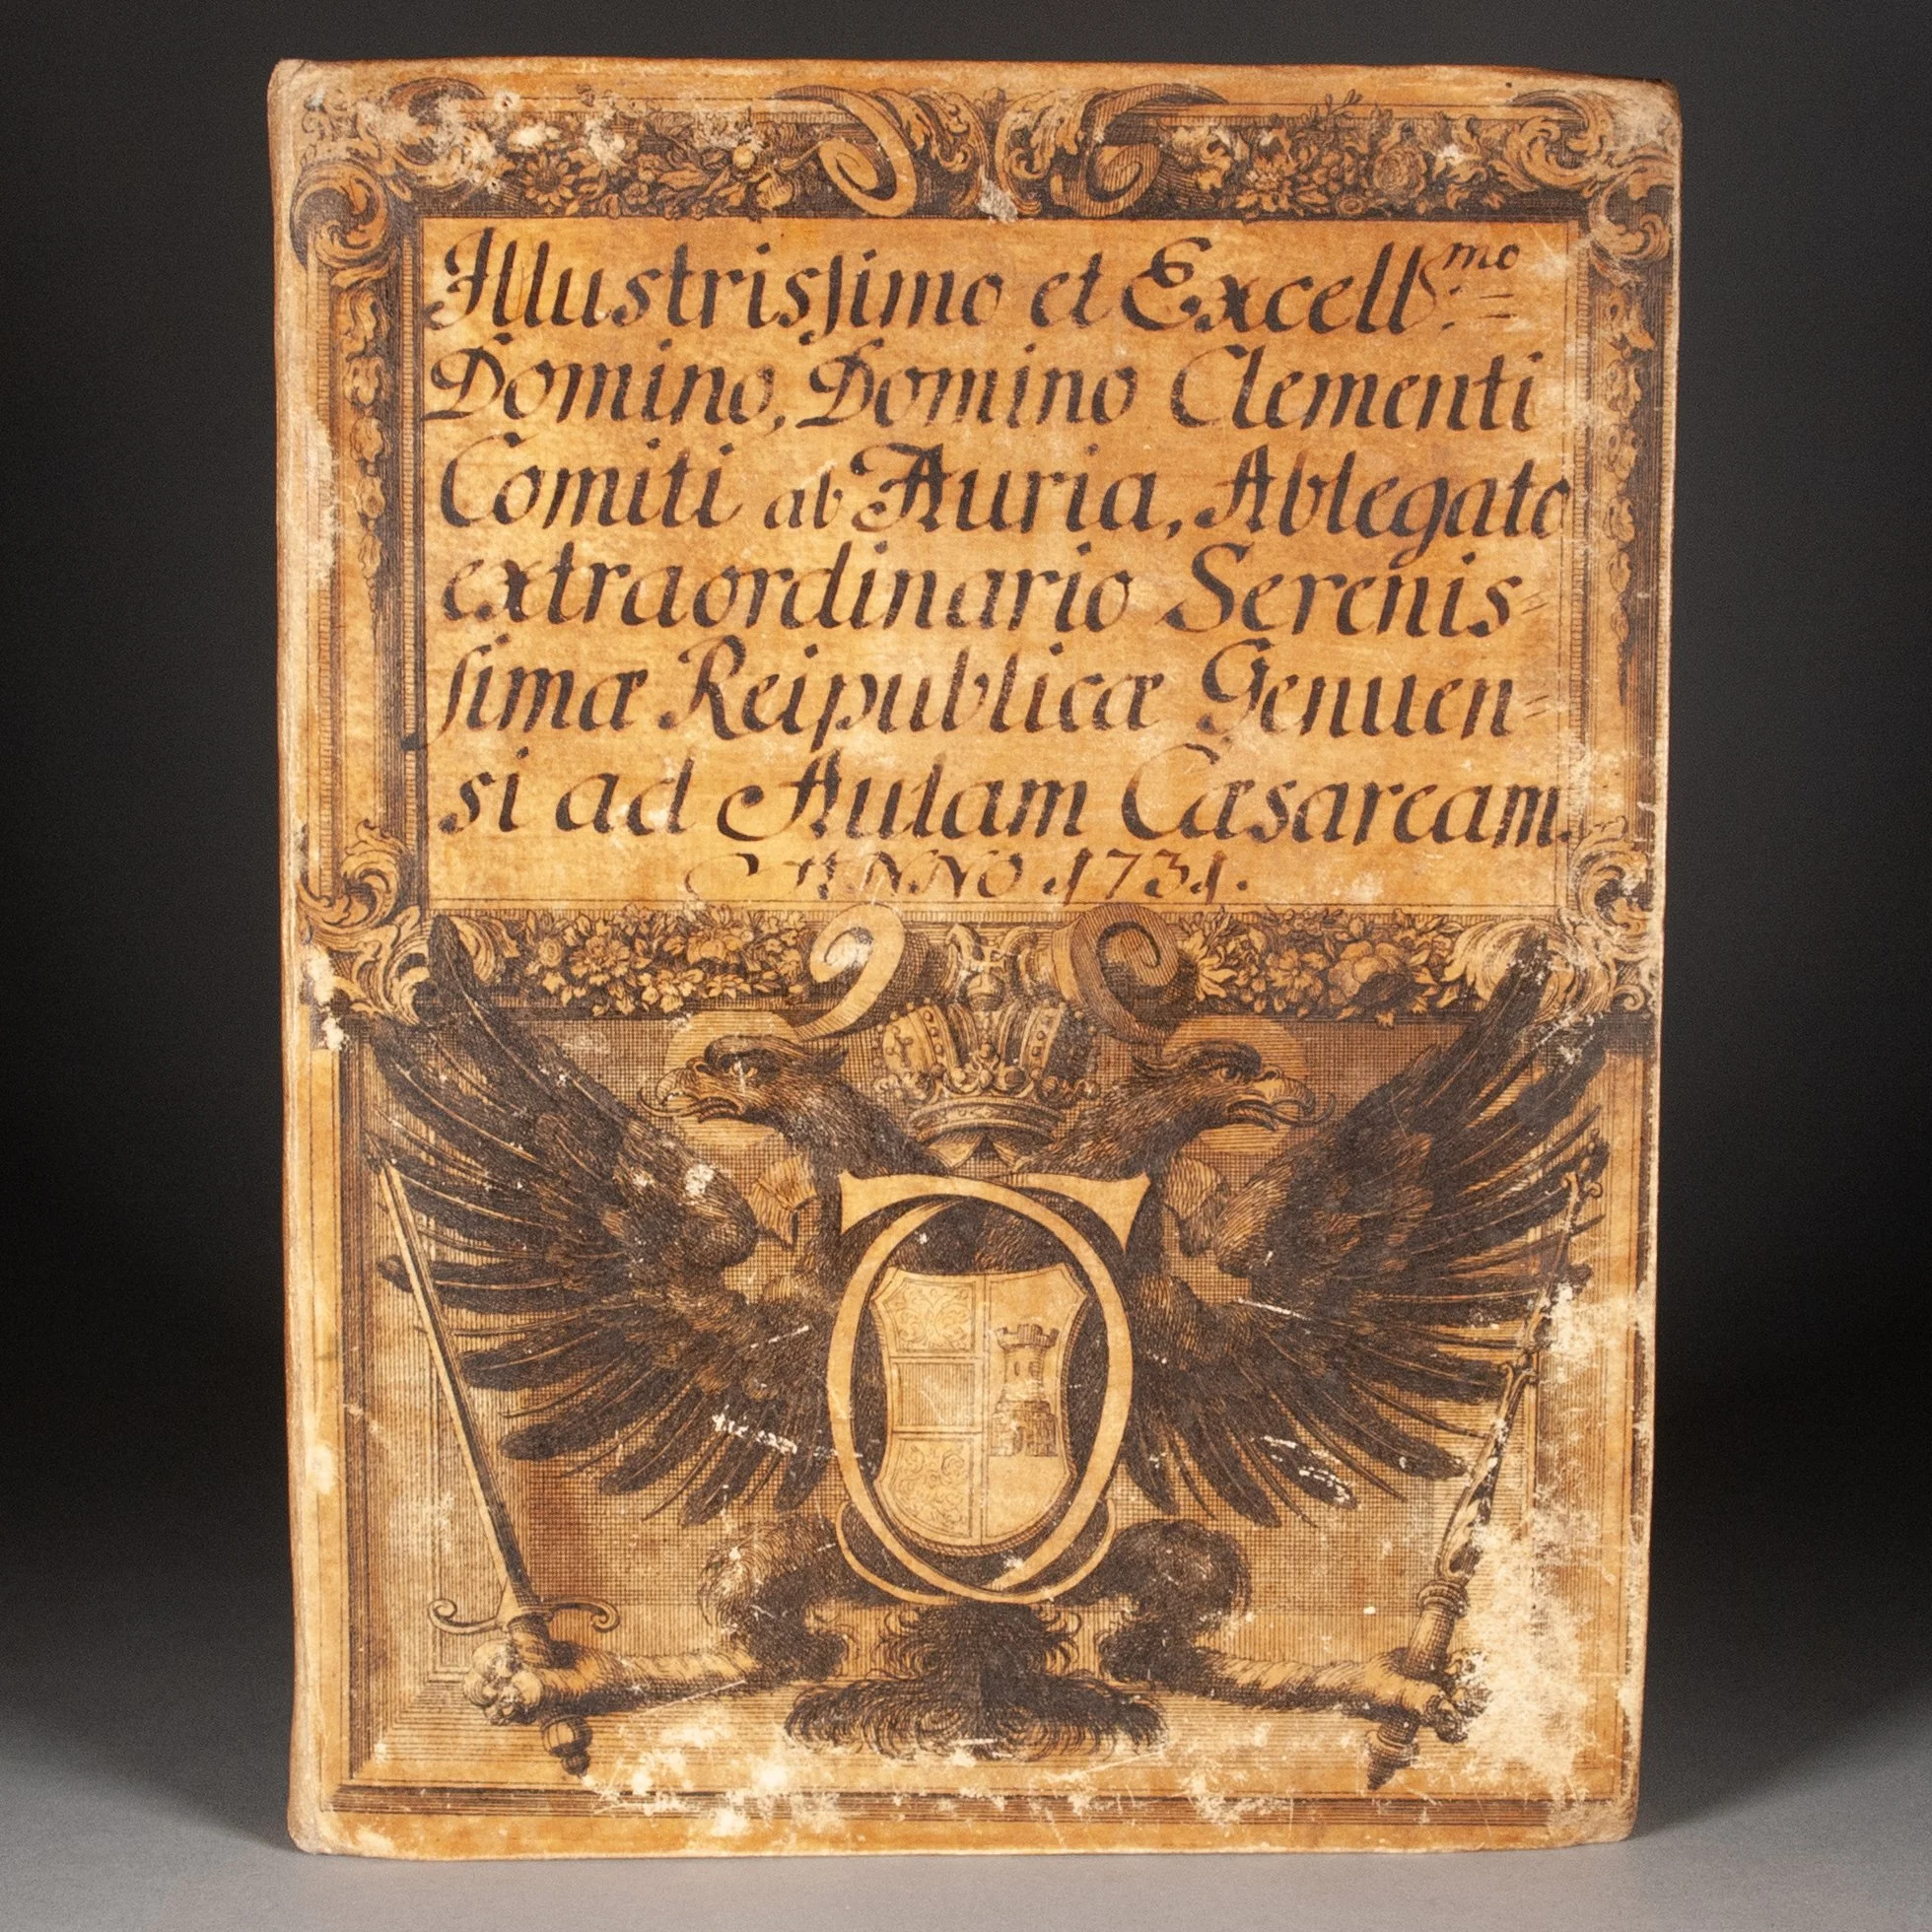 Illustrisſimo et Excellsmo:=
Domino, Domino Clementi
Comiti ab Auria, Ablegato
extraordinario Serenis=
ſimæ Reipublicæ Genuen=
si ad Aulam Cæsaream.
ANNO 1731.